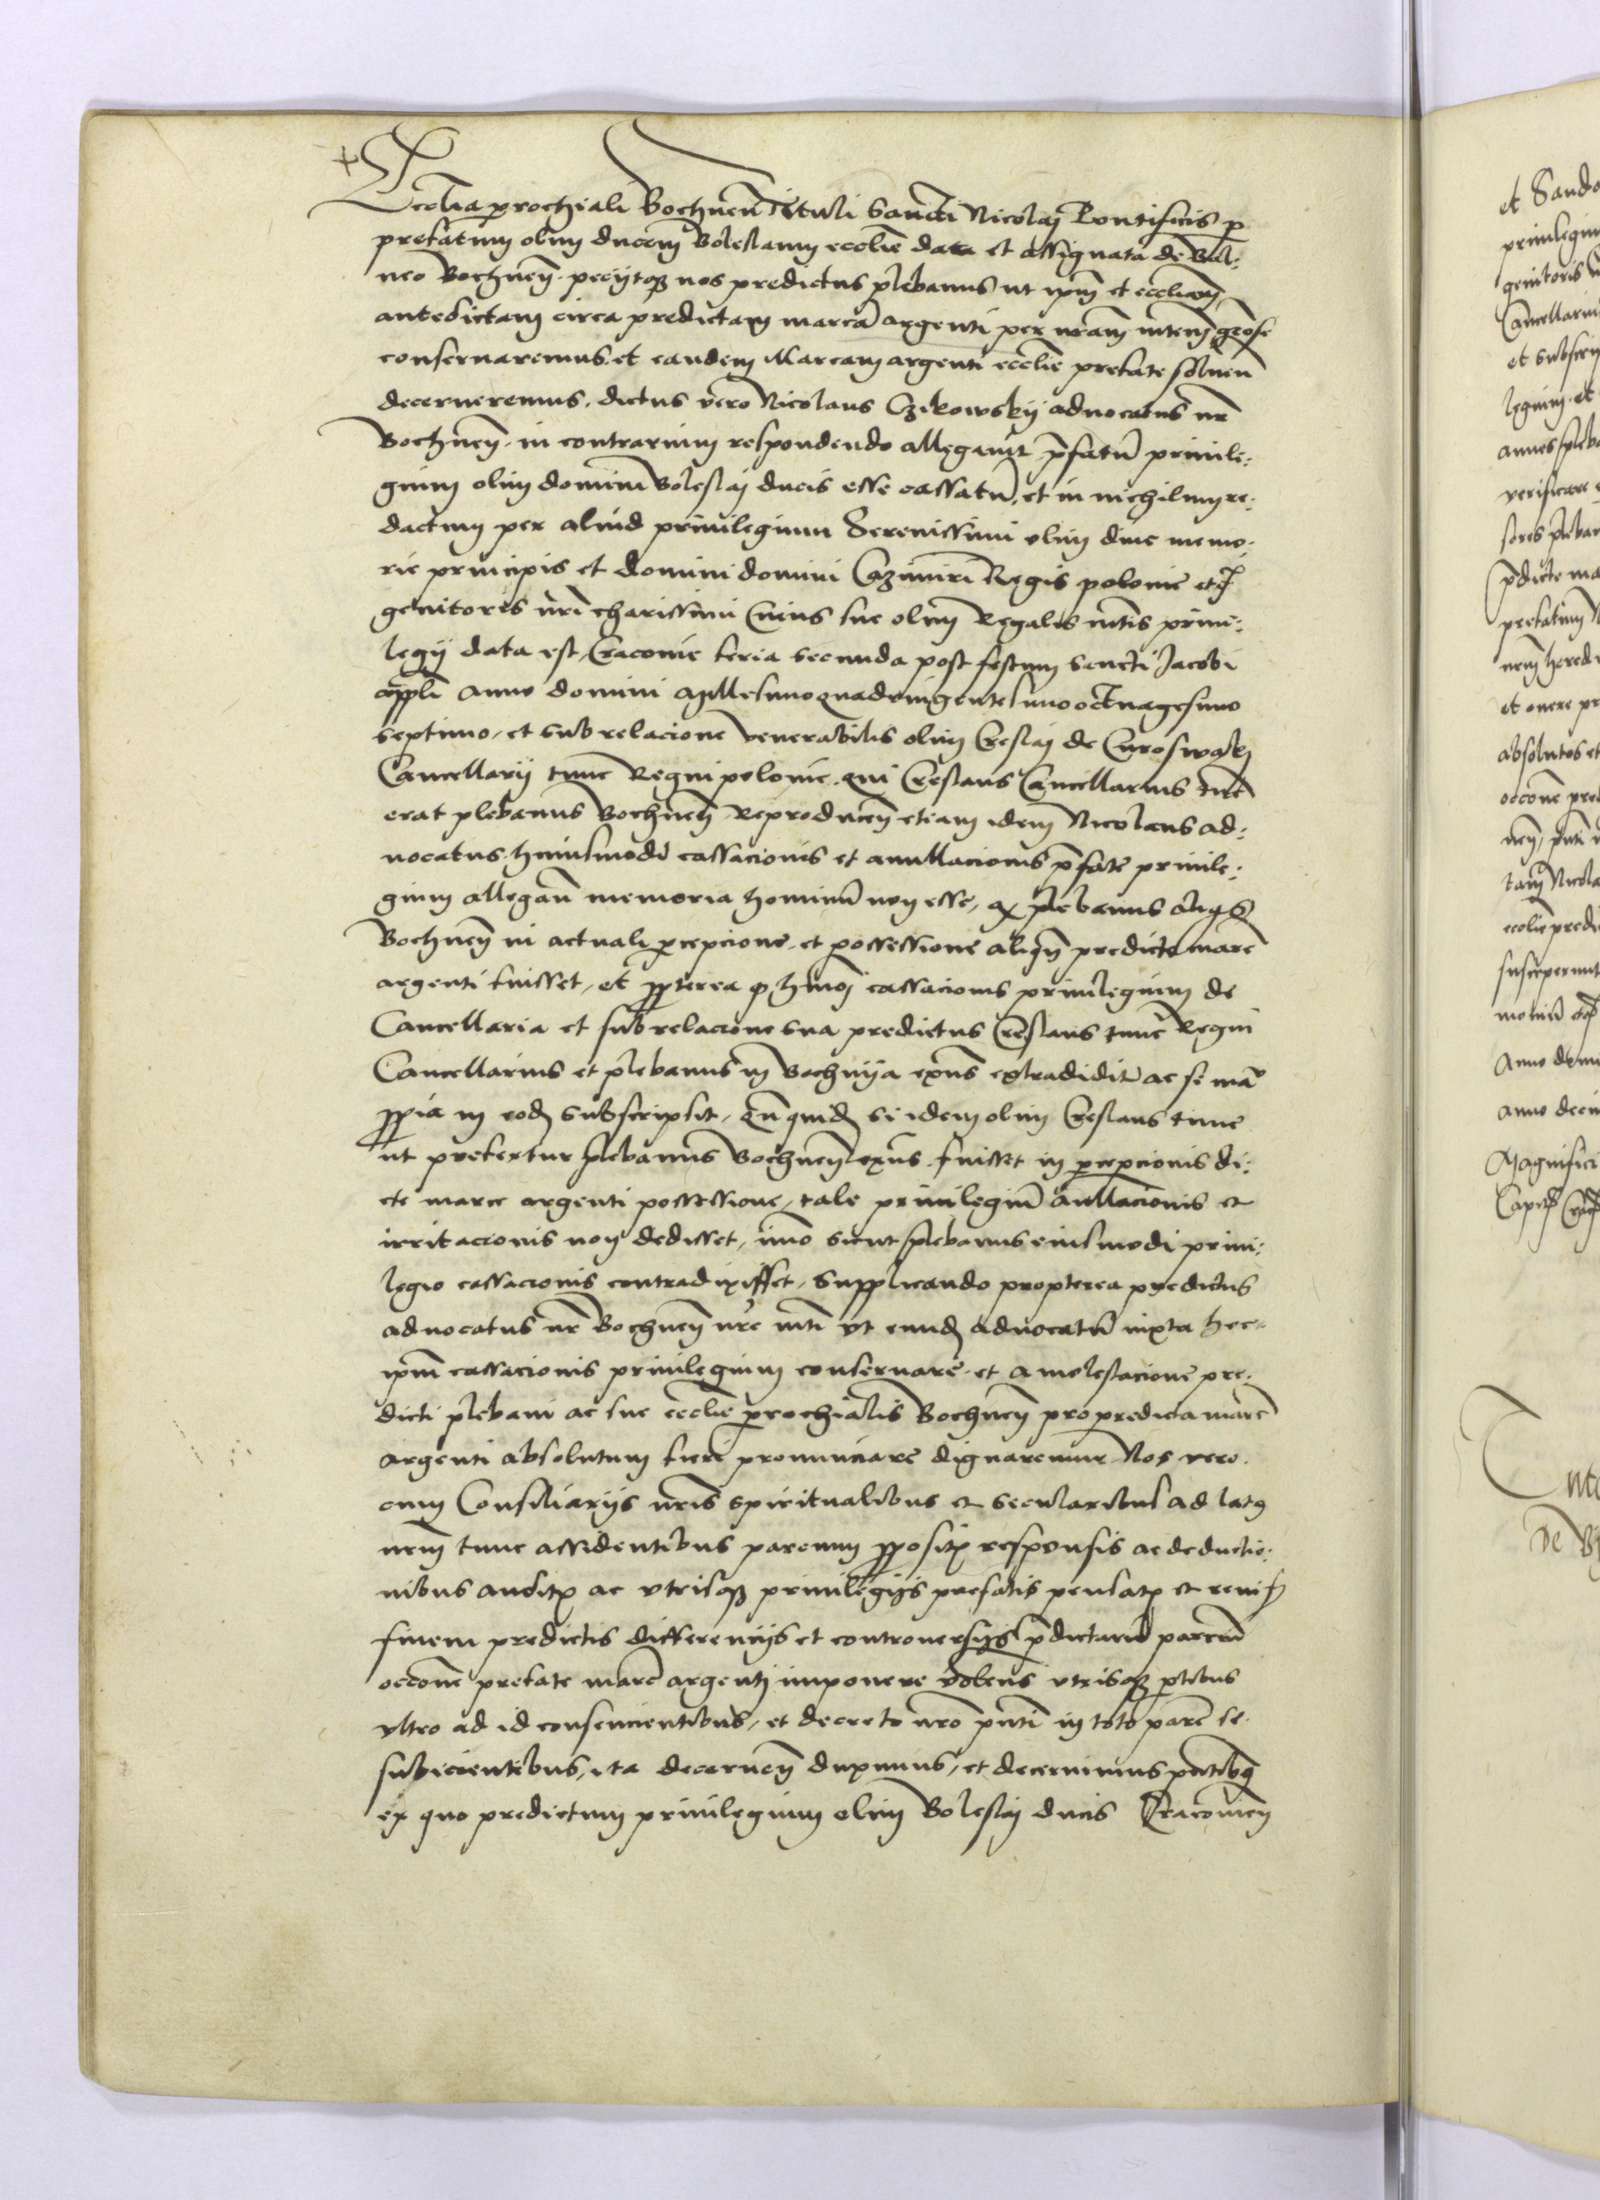 Ecclia parochiali Bochnen Tituli Sancti Nicolaj Pontificis p
prefatum olim ducem Boleslaum ecclie data et assignata de Bal:
neo Bochnen. peciitqz nos predictus plebanus ut ipm et eccliam
antedictam circa predictam marcā argenti per nram mtem grose
conservaremus. et eandem Marcam argenti ecclie prefate solven
decerneremus. dictus vero Nicolaus Czikowskij advocatus nr
Bochnen. in contrarium respondendo allegavit pfatū privile:
gium olim domini Boleslaj ducis esse cassatū, et in nichilum re:
dactum per aliud privilegium Serenissimi olim dive memo:
rie principis et domini domini Cazimiri Regis polonie etc
genitoris nri charissimi Cuius sue olim Regalis mtis privi:
legij data est, Cracovie feria secunda post festum Sancti Jacobi
appli Anno domini Millesimo quadringentesimo octuagesimo
septimo, et sub relacione venerabilis olim Creslaj de Curoswaky
Cancellarij tunc Regni polonie. qui Creslaus Cancellarius tunc
erat plebanus Bochnen Reproducen etiam idem Nicolaus ad:
vocatus. huiusmodi cassacionis et annullacionis pfate privile:
gium allegan memoria hominū non esse, q plebanus aliqs
Bochnen in actuali percepcione. et possessione aliqn predicte marc
argenti fuisset, et ppterea q hmoi cassacionis privilegium de
Cancellaria et sub relacione sua predictus Creslaus tunc Regni
Cancellarius et plebanus in Bochnija exns extradidit ac se manu
ppria in eod subscripsit, Qn quid si idem olim Creslaus tunc
ut prefertur plebanus Bochnen exns fuisset in percepcionis di:
cte marce argenti possessione, tale privilegiū anullacionis et
irritacionis non dedisset, imo sicut plebanus eiusmodi privi:
legio cassacionis contradixisset, Supplicando propterea predictus
advocatus nr Bochnen nre mti ut eund advocatū iuxta hec
ipm cassacionis privilegium conservare. et a molestacione pre:
dicti plebani ac sue ecclie parochialis Bochnen pro predicta marc
argenti absolutum fieri pronunciare dignaremur Nos vero
cum Consiliarijs nris spiritualibus et secularibus ad latus
nrm tunc assidentibus parcium ppositis responsis ac deductio:
nibus auditis ac utrisqz privilegijs prefatis pensatis et revisis
finem predictis differencijs et controversijs pdictarū parciū
occone prefate marc argenti imponere volens utrisqz ptibus
ultro ad id consencientibus, et decreto nro pnti in toto parc se
subicientibus, ita decernen duximus, et decernimus pntibus
ex quo predictum privilegium olim Boleslaj ducis Cracovien
et Sando
privilegiu
genitoris
Cancellariu
et subscrip
legium. et
verificare
pdicte ma
prefatum
et onere pr
absolutos et
occone pre
ecclie predi
susceperunt
Anno domi
Magnifici